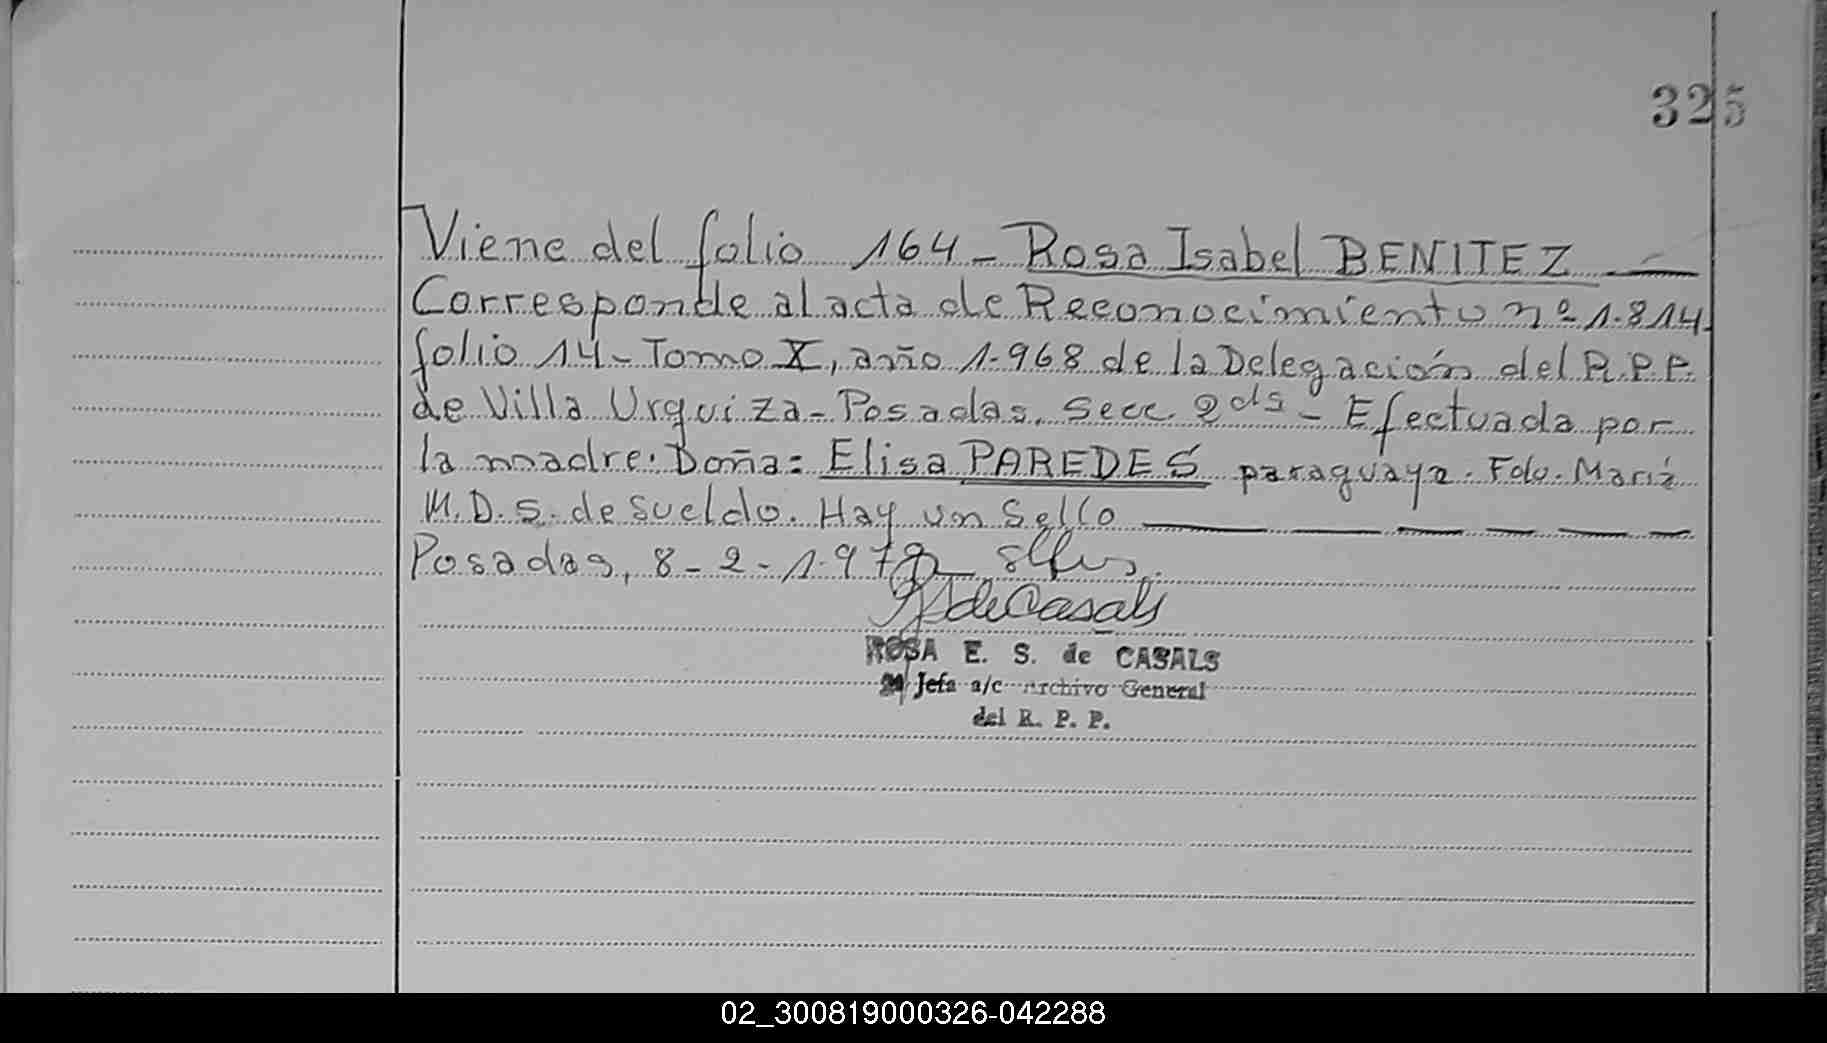 325
Viene del folio 164 - Rosa Isabel BENITEZ
Corresponde al acta de Reconocimiento nº 1.814-
folio 14 - Tomo X, año 1.968 de la Delegación del R.P.P.
de Villa Urquiza - Posadas. Secc. 2da - Efectuada por
la madre. Doña: Elisa PAREDES paraguaya. Fdo. María
M.D.S. de Sueldo. Hay un Sello
Posadas, 8-2-1.97
de Casals
ROSA E. S. de CASALS
Jefa a/c Archivo General
del R. P. P.
02_300819000326-042288